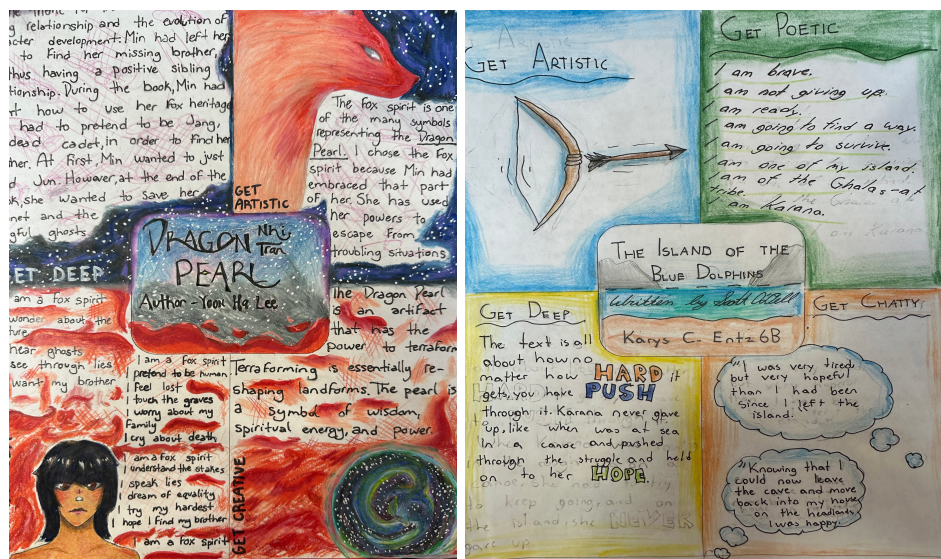 relationship and the evolution of
development. Min had left her
to find her missing brother,
thus having a positive sibling
During the book, Min had
how to use her fox heritage
had to pretend to be Jang,
dead cadet, in order to find her
At first, Min wanted to just
Jun. However, at the end of the
she wanted to save her
and the
ghosts.
GET DEEP
GET
ARTISTIC
The fox spirit is one
of the many symbols
representing the Dragon
Pearl. I chose the Fox
spirit because Min had
embraced that part
of her. She has used
her powers to
escape from
troubling situations.
DRAGON Nhi
Tran
PEARL
Author - Yoon Ha Lee
am a fox spirit
wonder about the
hear ghosts
see through lies
want my brother
I am a fox spirit
pretend to be human
I feel lost
I touch the graves
I worry about my
Family
I cry about death
I am a fox spirit
understand the stakes
speak lies
dream of equality
try my hardest
hope I find my brother
I am a fox spirit
GET CREATIVE
The Dragon Pearl
is an artifact
that has the
power to terraform
Terraforming is essentially re-
shaping landforms. The pearl is
a symbol of wisdom,
spiritual energy, and power.
GET ARTISTIC
GET POETIC
I am brave.
I am not giving up.
I am ready.
I am going to find a way.
I am going to survive.
I am one of my island.
I am of the Ghalas-at
tribe.
I am Karana.
THE ISLAND OF THE
BLUE DOLPHINS
Written by Scott O'Dell
Karys C. Entz 6B
GET DEEP
The text is all
about how no
matter how HARD it
gets, you have PUSH
through it. Karana never gave
up, like when was at sea
in a canoe and pushed
through the struggle and held
on to her HOPE.
GET CHATTY
"I was very tired,
but very hopeful
than I had been
since I left the
island."
"Knowing that I
could now leave
the cave and move
back into my house
on the headland,
I was happy.